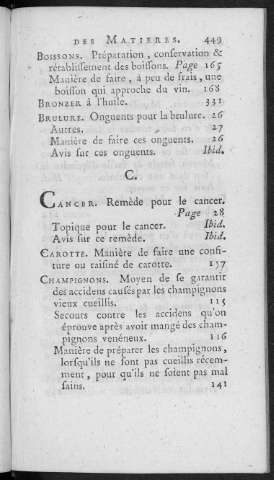 DES MATIERES. 449
BOISSONS. Préparation, conservation &
rétablissement des boissons. Page 165
Manière de faire, à peu de frais, une
boisson qui approche du vin. 168
BRONZER à l'huile. 331
BRULURE. Onguents pour la brulure. 26
Autres. 27
Manière de faire ces onguents. 26
Avis sur ces onguents. Ibid.
C.
CANCER. Remède pour le cancer.
Page 28
Topique pour le cancer. Ibid.
Avis sur ce remède. Ibid.
CAROTTE. Manière de faire une confi-
ture ou raisiné de carotte. 137
CHAMPIGNONS. Moyen de se garantir
des accidens causés par les champignons
vieux cueillis. 115
Secours contre les accidens qu'on
éprouve après avoir mangé des cham-
pignons venéneux. 116
Manière de préparer les champignons,
lorsqu'ils ne sont pas cueillis récem-
ment, pour qu'ils ne soient pas mal
sains. 141